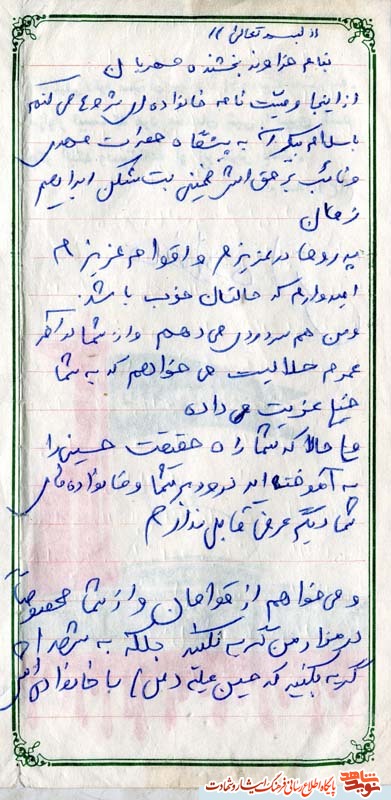 «بسمه تعالی»
بنام خداوند بخشنده مهربان
از اینجا وصیت نامه خانوادگی شروع می کنم
با سلام بیکران به پیشگاه حضرت مهدی
و نائب بر حقش خمینی بت شکن ابراهیم
زمان
پدر و مادر عزیزم و اقوام عزیزم
امیدوارم که حالتان خوب باشد
ومن هم سر دردی می دهم و از شما در آخر
عمرم حلالیت می خواهم که به شما
خیلی عذیت می داده
حالا که شما راه حقیقت حسینی را
به آموخته اید درود بر شما و خانواده های
شما دیگر عرض قابلی ندارم
و می خواهم از قوامان و از شما مخصوصاً
در مزار من گریه نکنید بلکه به شهدا
گریه بکنید که حسین علیه (س) با خانواده اش
پایگاه اطلاع رسانی فرهنگ ایثار و شهادت
نوید شاهد